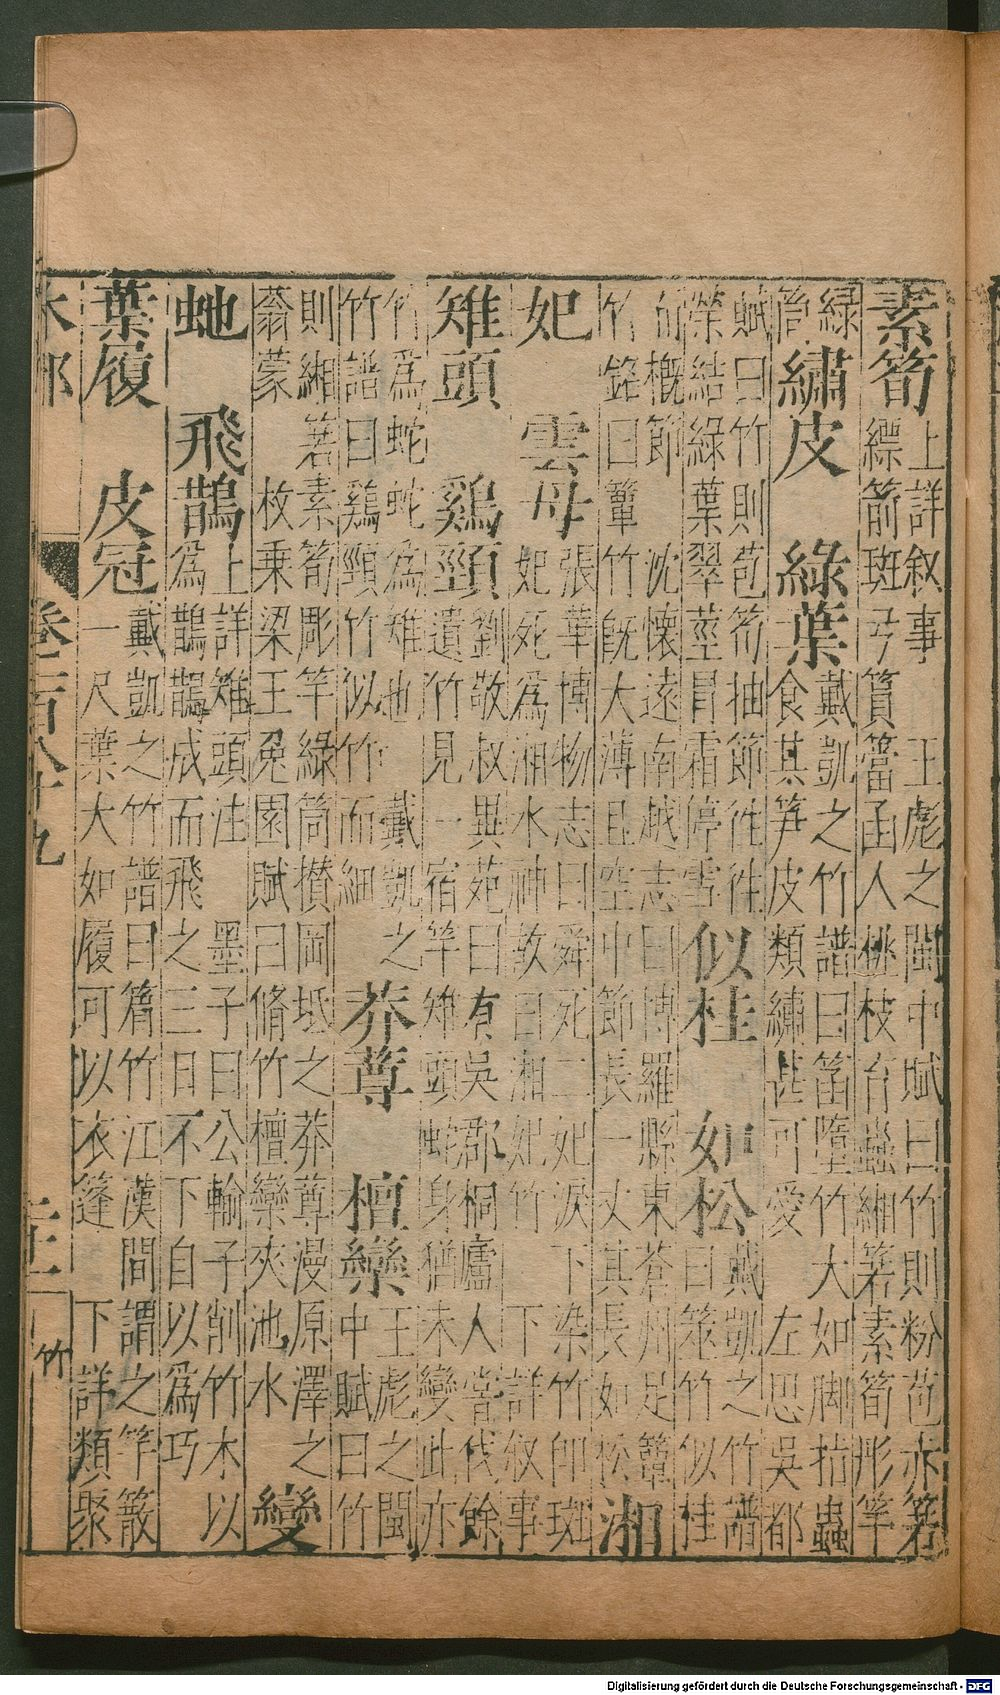 素筍上詳叙事　王彪之閩中賦曰竹則粉苞赤箬
縹箭斑弓篔簹函人桃枝育蟲緗箬素筍彤竿
綠筒繡皮　綠葉戴凱之竹譜曰䈏墮竹大如脚指蟲
食其笋皮類繡甚可愛　左思吳都
賦曰竹則苞筍抽節往往
縈結綠葉翠莖冒霜停雪似桂　如松戴凱之竹譜
曰筇竹似桂
而概節　沈懷遠南越志曰博羅縣東蒼州足簟
竹銘曰簟竹既大薄且空中節長一丈其長如松湘
妃　雲母張華博物志曰舜死二妃淚下染竹即斑
妃死爲湘水神故曰湘妃竹　下詳叙事
雉頭　鷄頸劉敬叔異苑曰有吳郡桐廬人嘗伐餘
遺竹見一宿竿雉頭蛇身猶未變此亦
竹爲蛇蛇爲雉也　戴凱之
竹譜曰鷄頸竹似竹而細莽蕁　檀欒王彪之閩
中賦曰竹
則緗箬素筍彫竿綠筒攢岡坻之莽蕁漫原澤之
蓊蒙　枚乘梁王兔園賦曰脩竹檀欒夾池水變
虵　飛鵲上詳雉頭注　墨子曰公輸子削竹木以
爲鵲鵲成而飛之三日不下自以爲巧
葉履　皮冠戴凱之竹譜曰䈽竹江漢間謂之竿䉈
一尺葉大如履可以衣篷　下詳類聚
木部　卷二百八十九　二十一　竹
Digitalisierung gefördert durch die Deutsche Forschungsgemeinschaft - DFG